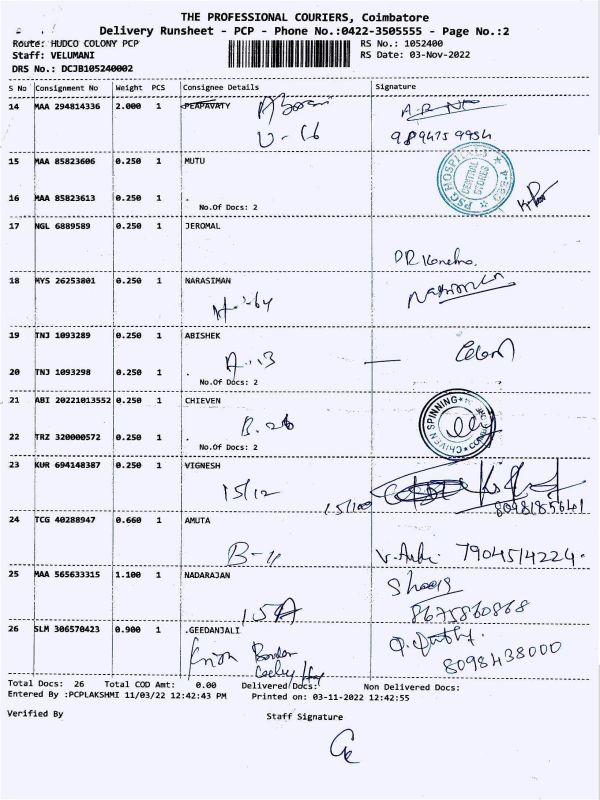 THE PROFESSIONAL COURIERS, Coimbatore
Delivery Runsheet - PCP - Phone No.:0422-3505555 - Page No.:2
Route: HUDCO COLONY PCP RS No.: 1052400
Staff: VELUMANI RS Date: 03-Nov-2022
DRS No.: DCJB105240002
S No Consignment No Weight PCS Consignee Details Signature
14 MAA 294814336 2.000 1 PEAPAVATY
U-66
15 MAA 85823606 0.250 1 MUTU
PSG HOSPITALS
CENTRAL STORES
16 MAA 85823613 0.250 1 .
No.Of Docs: 2
17 NGL 6889589 0.250 1 JEROMAL
18 MYS 26253801 0.250 1 NARASIMAN
19 TNJ 1093289 0.250 1 ABISHEK
A-13
20 TNJ 1093298 0.250 1 .
No.Of Docs: 2
21 ABI 20221013552 0.250 1 CHIEVEN
B.26
CHIVEN SPINNING
22 TRZ 320000572 0.250 1 .
No.Of Docs: 2
23 KUR 694148387 0.250 1 VIGNESH
15/12 15/100
24 TCG 40288947 0.660 1 AMUTA
B-11 7904514224.
25 MAA 565633315 1.100 1 NADARAJAN
15A 8675860868
26 SLM 306570423 0.900 1 .GEEDANJALI
8098438000
Total Docs: 26 Total COD Amt: 0.00 Delivered Docs: Non Delivered Docs:
Entered By :PCPLAKSHMI 11/03/22 12:42:43 PM Printed on: 03-11-2022 12:42:55
Verified By Staff Signature